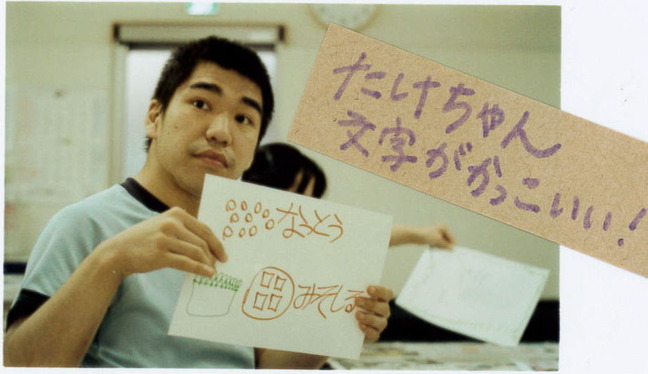 たけちゃん
文字がかっこいい!
なっとう
みそしる